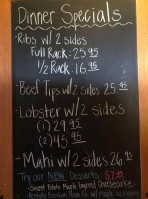 Dinner Specials
-Ribs w/ 2 sides
Full Rack - 25.95
1/2 Rack - 16.95
-Beef Tips w/ 2 sides 25.95
-Lobster w/ 2 sides
(1) 29.95
(2) 45.95
-Mahi w/ 2 sides 26.95
Try our NEW Desserts: $7.95
-Sweet Potato Maple Cheesecake